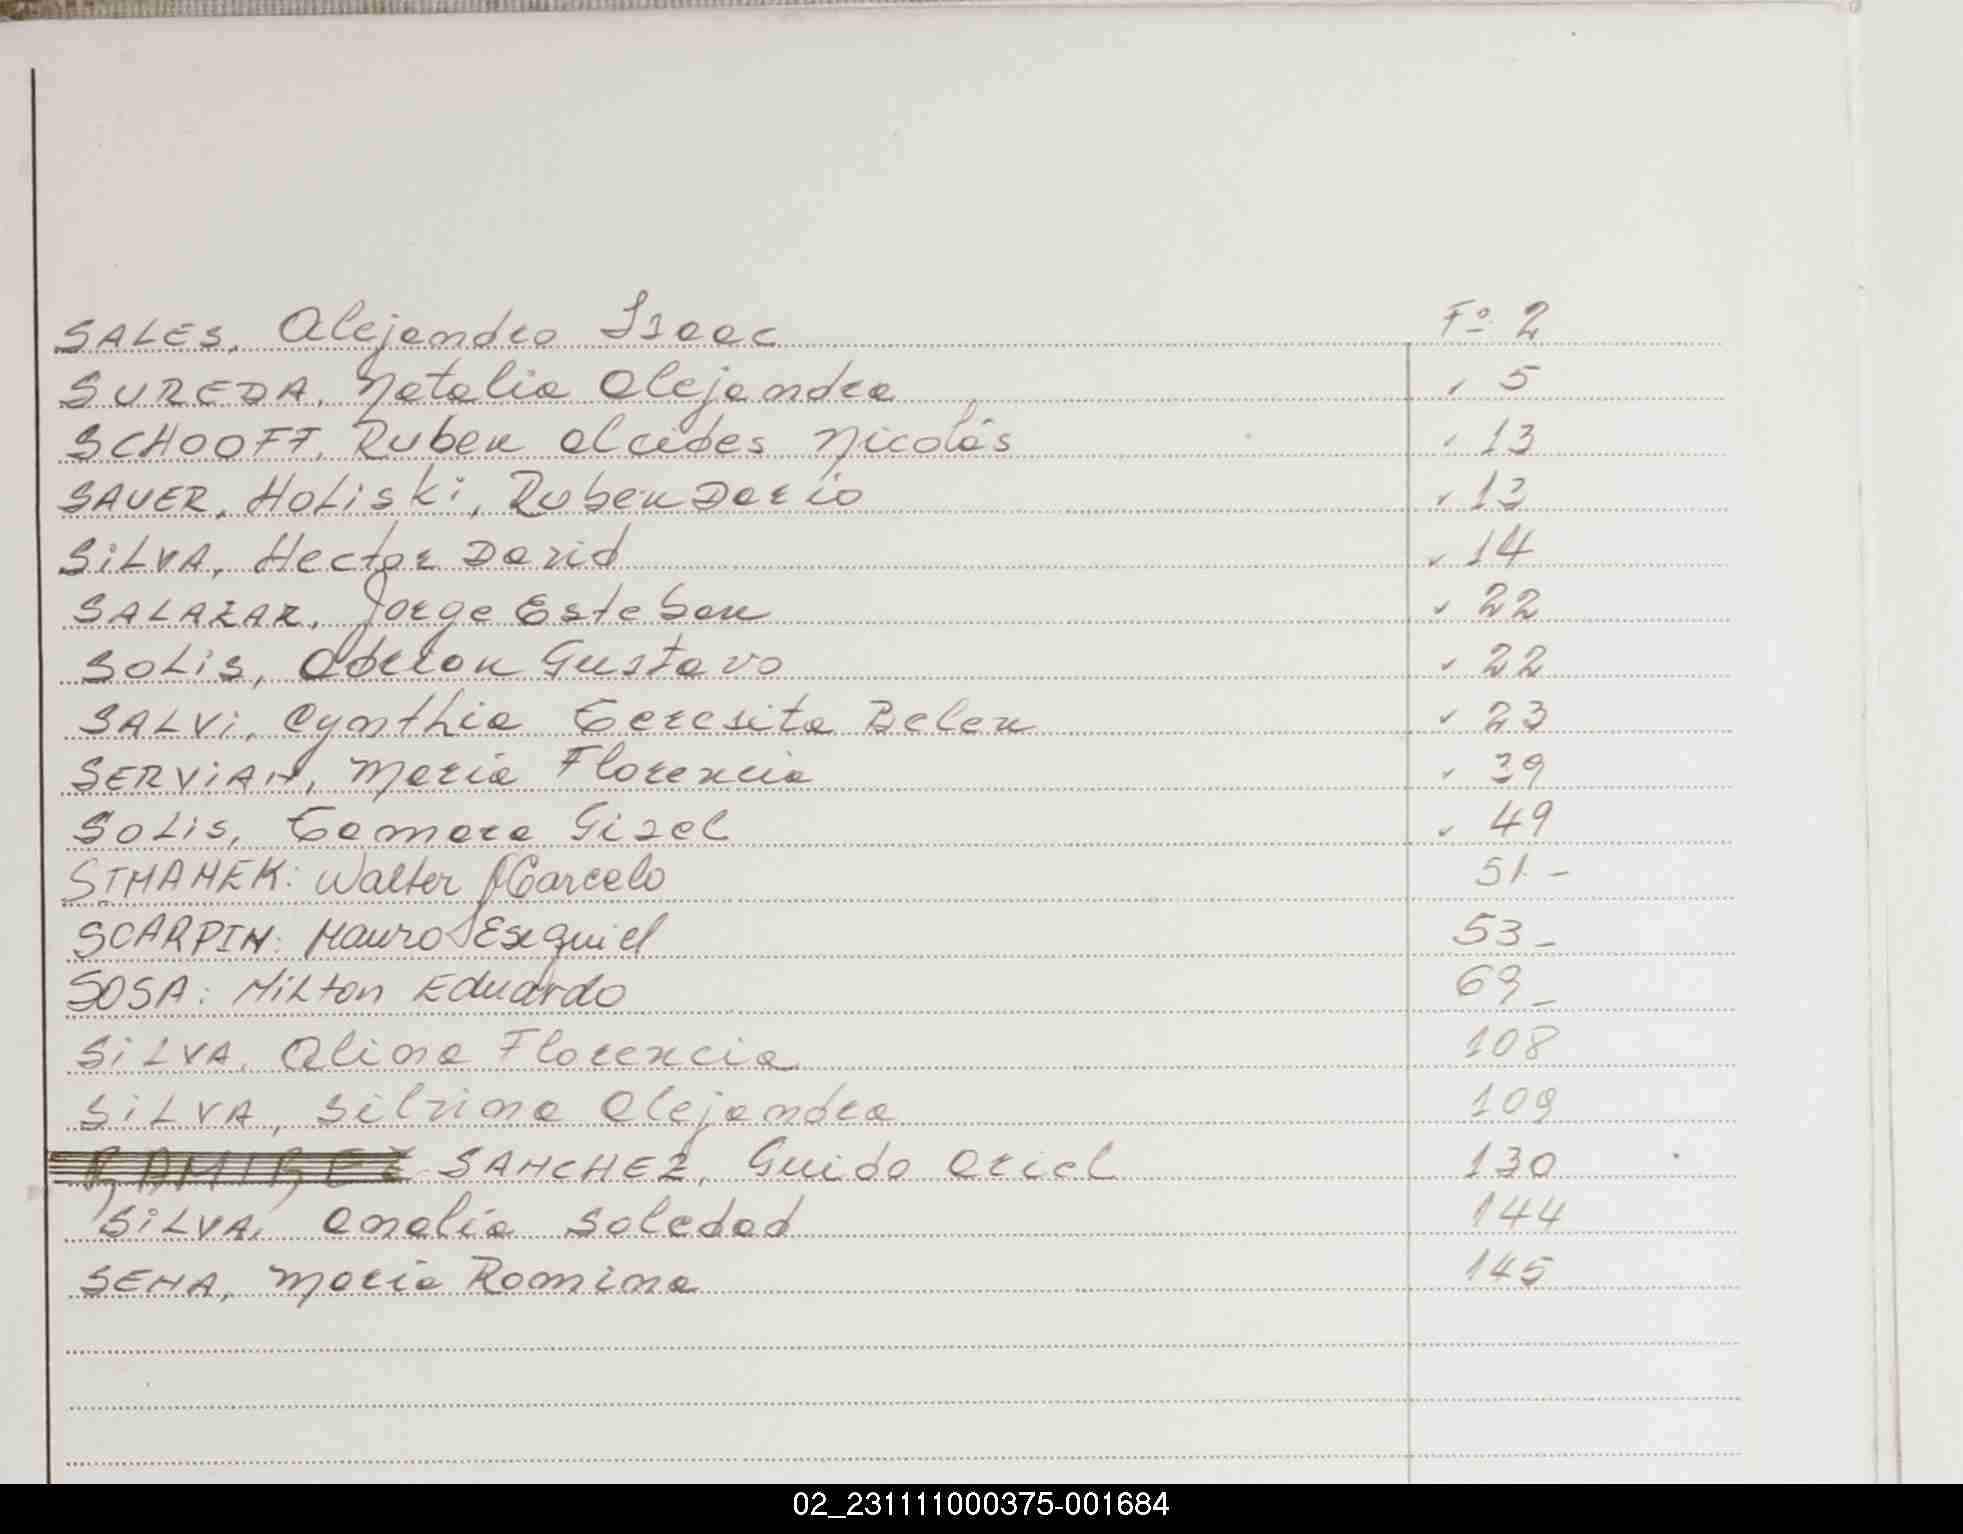 SALES, Alejandro Isaac Fº 2
SUREDA, Natalia Alejandra ✓ 5
SCHOOFF, Ruben Alcides Nicolás ✓ 13
SAUER, Holiski, Ruben Dario ✓ 13
SiLVA, Hector David ✓ 14
SALAZAR, Jorge Esteban ✓ 22
SOLiS, Gustavo ✓ 22
SALVi, Cynthia Teresita Belen ✓ 23
SERViAN, Maria Florencia ✓ 39
SOLiS, Tamara Gisel ✓ 49
Walter Marcelo 51 -
SCARPIN: Mauro Exequiel 53 -
SOSA: Milton Eduardo 69 -
SiLVA, Alina Florencia 108
SiLVA, Silvina Alejandra 109
RAMIREZ SANCHEZ, Guido Ariel 130
SiLVA, Analía Soledad 144
SENA, María Romina 145
02_231111000375-001684